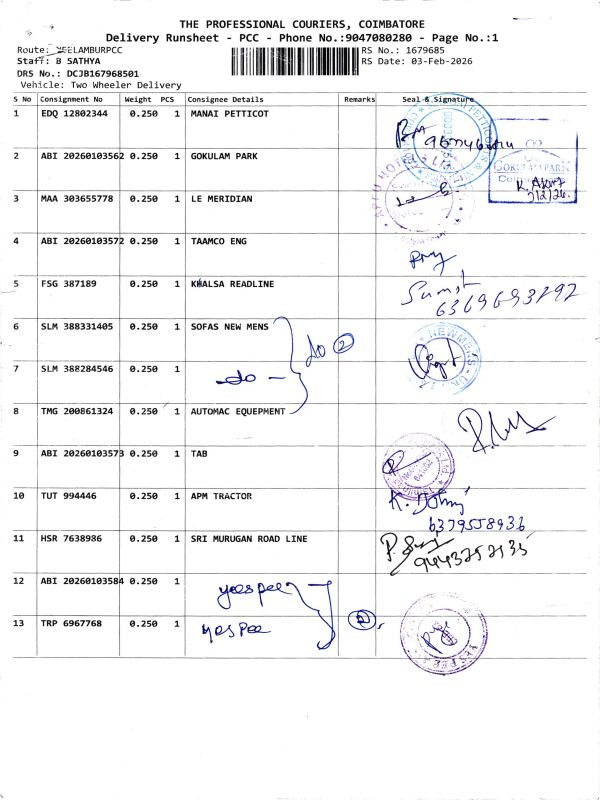 THE PROFESSIONAL COURIERS, COIMBATORE
Delivery Runsheet - PCC - Phone No.:9047080280 - Page No.:1
Route: NEELAMBURPCC
RS No.: 1679685
Staff: B SATHYA
RS Date: 03-Feb-2026
DRS No.: DCJB167968501
Vehicle: Two Wheeler Delivery
S No Consignment No Weight PCS Consignee Details Remarks Seal & Signature
1 EDQ 12802344 0.250 1 MANAI PETTICOT
2 ABI 20260103562 0.250 1 GOKULAM PARK
GOKULAM PARK
3/2/26
3 MAA 303655778 0.250 1 LE MERIDIAN
4 ABI 20260103572 0.250 1 TAAMCO ENG
5 FSG 387189 0.250 1 KHALSA READLINE
6369693292
6 SLM 388331405 0.250 1 SOFAS NEW MENS
do 2
7 SLM 388284546 0.250 1 - do -
8 TMG 200861324 0.250 1 AUTOMAC EQUEPMENT
9 ABI 20260103573 0.250 1 TAB
10 TUT 994446 0.250 1 APM TRACTOR
6379558936
11 HSR 7638986 0.250 1 SRI MURUGAN ROAD LINE
9443252135
12 ABI 20260103584 0.250 1 yeespee
13 TRP 6967768 0.250 1 yespee
2